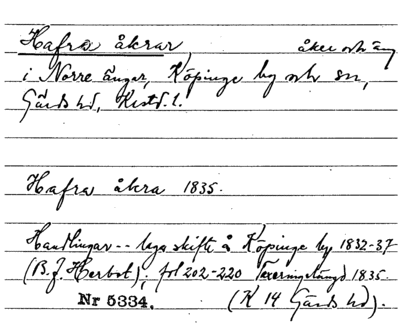 Hafra åkrar, åker och äng
i Norre ängar, Köpinge by och sn,
Gärds hd, Krstd. l.
Hafra åkra 1835.
Handlingar -- laga skifte å Köpinge by 1832-37
(B. J. Herbst); fol 202-220 Taxeringslängd 1835.
Nr 5334. (K 14 Gärds hd).